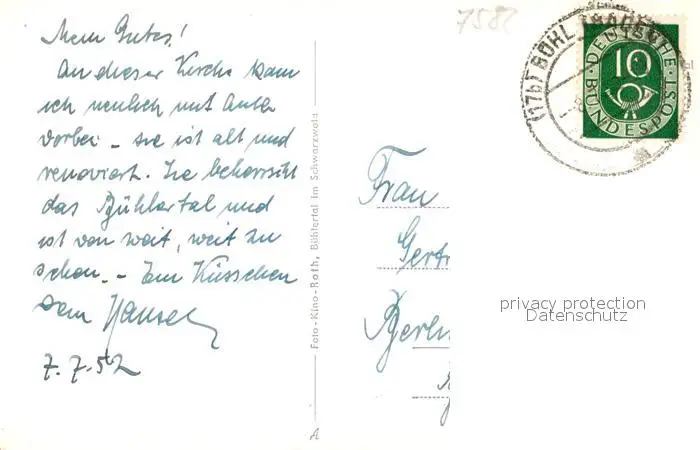 Mein Gutes!
An dieser Kirche kam
ich neulich mit Auto
vorbei – sie ist alt und
renoviert. Sie beherrscht
das Bühlertal und
ist von weit, weit zu
sehen. – Ein Küsschen
Dein Hansel
7.7.52
Foto-Kino-Roth, Bühlertal im Schwarzwald
7582
(17b) BÜHL (BADEN)
DEUTSCHE
10
BUNDESPOST
Frau
Gertr
Berlin
privacy protection
Datenschutz